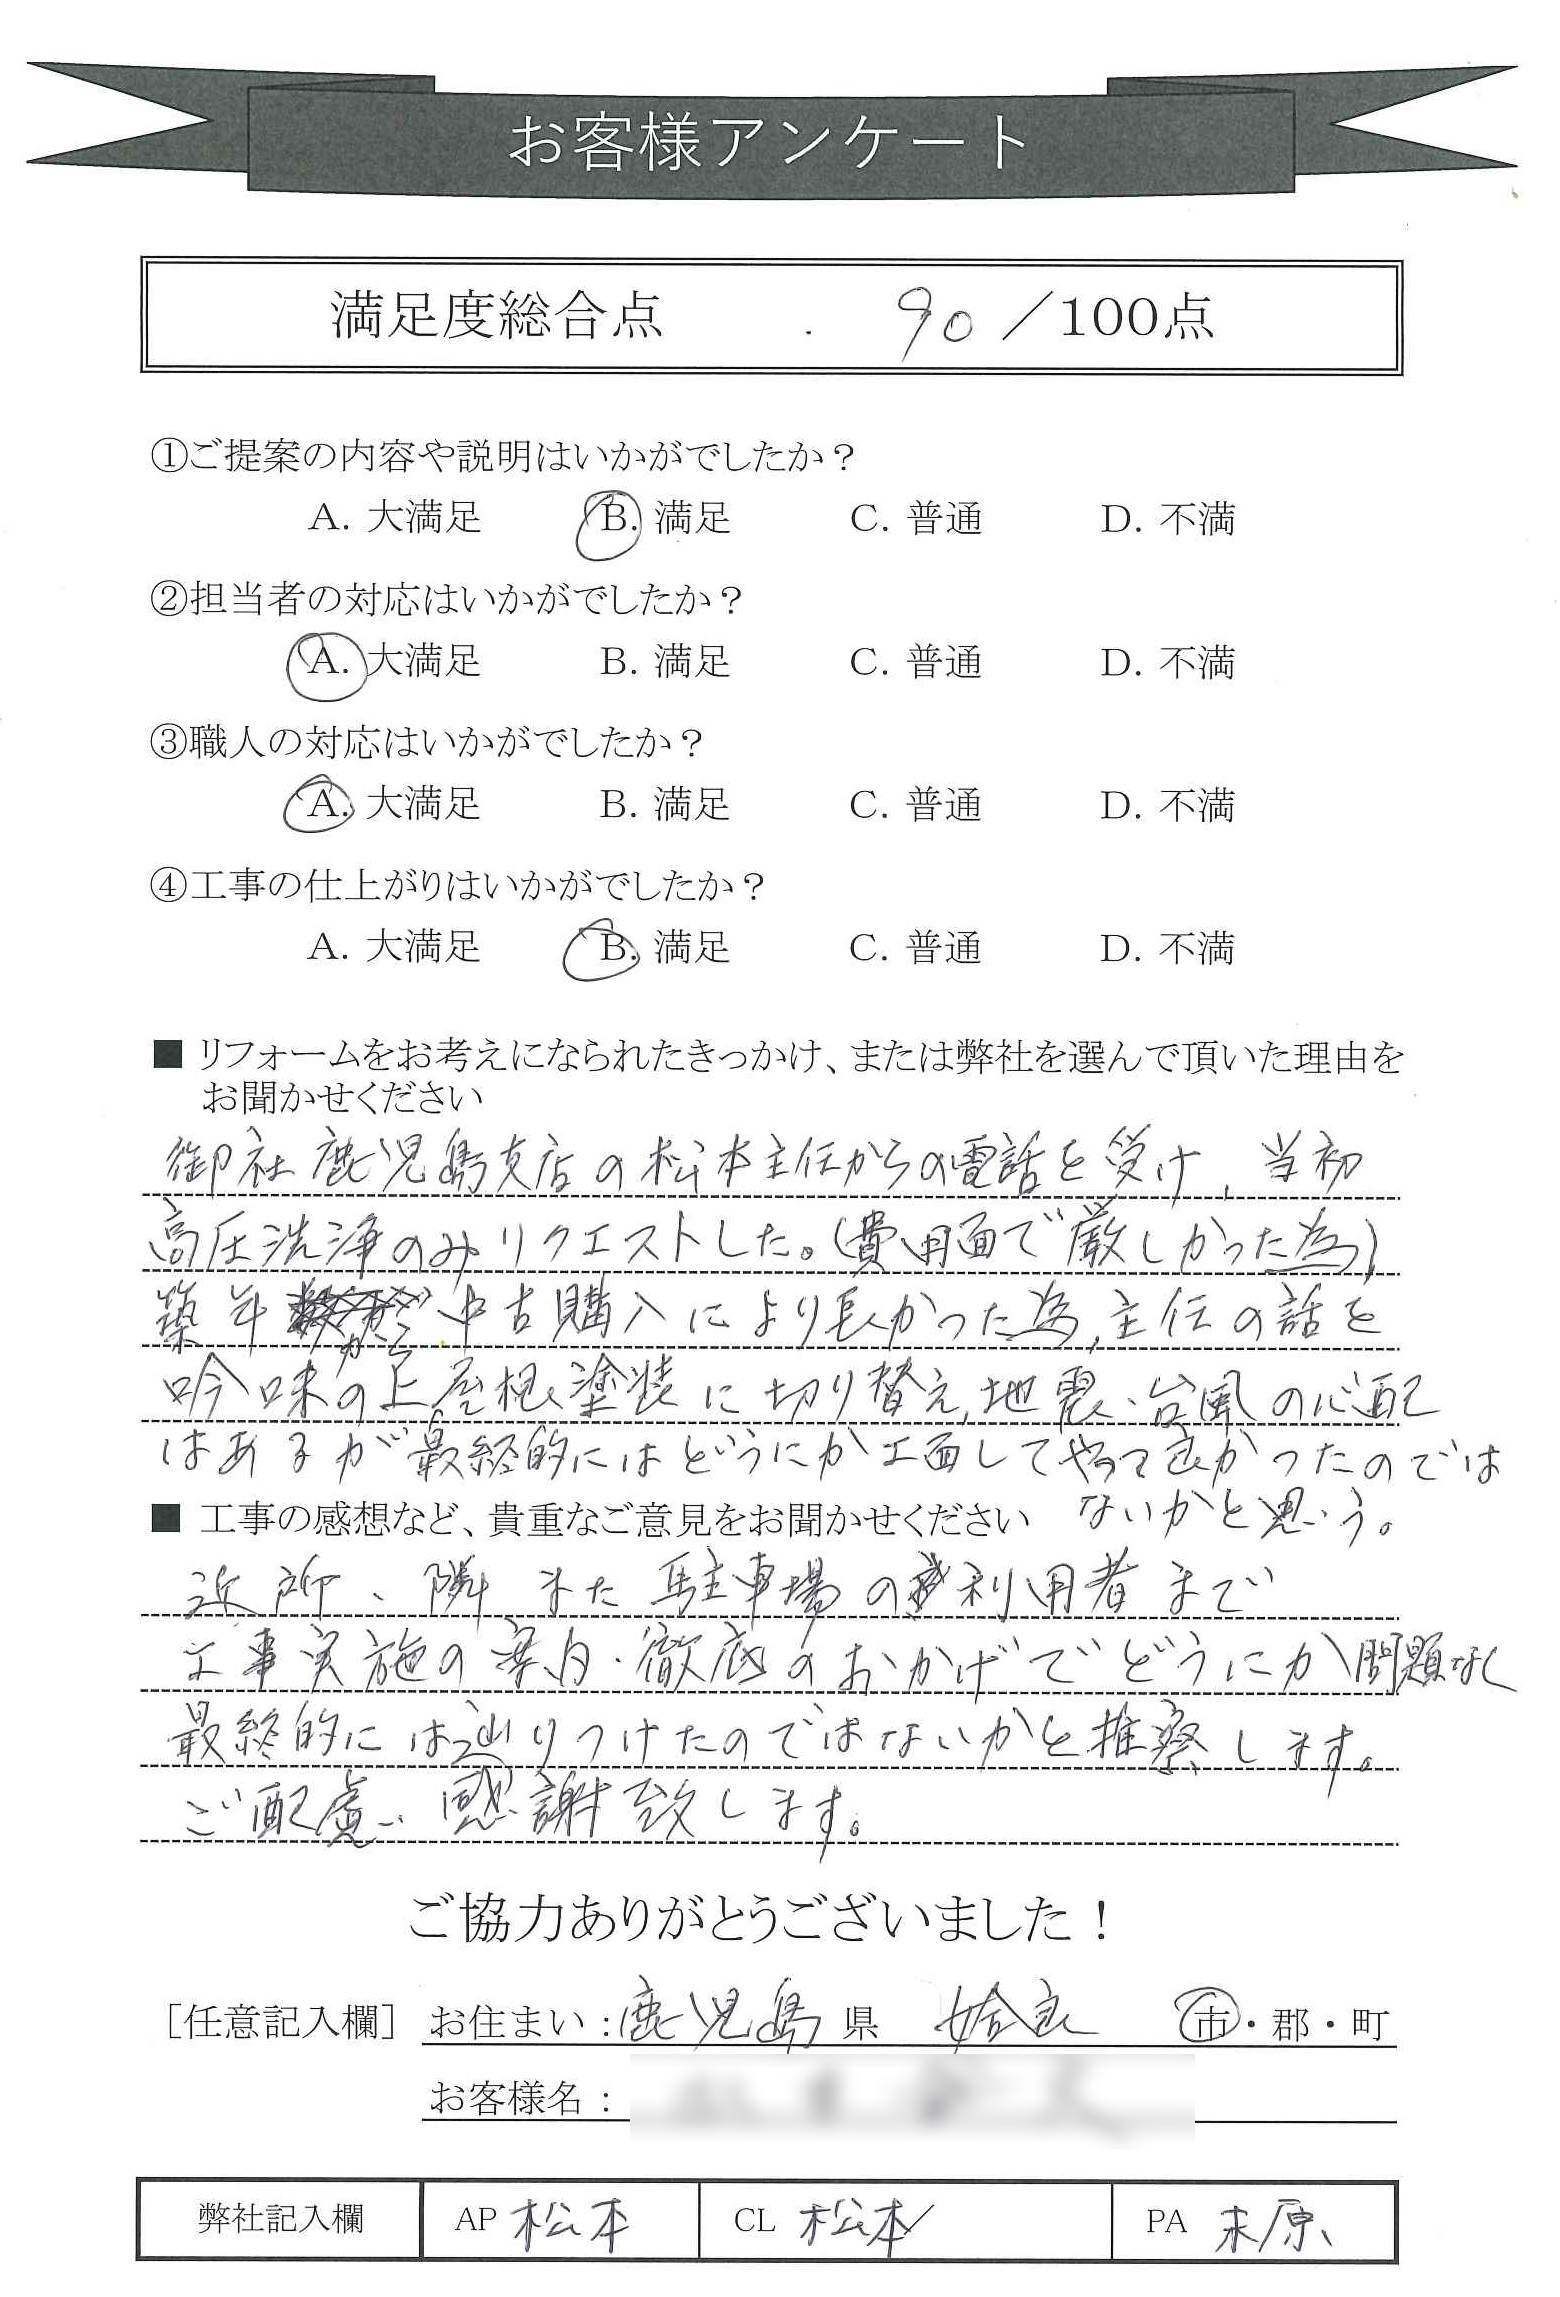 お客様アンケート
満足度総合点 90／100点
①ご提案の内容や説明はいかがでしたか？
A. 大満足 B. 満足 C. 普通 D. 不満
②担当者の対応はいかがでしたか？
A. 大満足 B. 満足 C. 普通 D. 不満
③職人の対応はいかがでしたか？
A. 大満足 B. 満足 C. 普通 D. 不満
④工事の仕上がりはいかがでしたか？
A. 大満足 B. 満足 C. 普通 D. 不満
■ リフォームをお考えになられたきっかけ、または弊社を選んで頂いた理由を
お聞かせください
御社鹿児島支店の松本主任からの電話を受け、当初
高圧洗浄のみリクエストした。(費用面で厳しかった為)
築年から中古購入により長かった為、主任の話を
吟味の上屋根塗装に切り替え、地震・台風の心配
はあるが最終的にはどうにか工面してやって良かったのでは
ないかと思う。
■ 工事の感想など、貴重なご意見をお聞かせください
近所、隣また駐車場の利用者まで
工事実施の案内・徹底のおかげでどうにか問題なく
最終的には辿りつけたのではないかと推察します。
ご配慮、感謝致します。
ご協力ありがとうございました！
［任意記入欄］ お住まい：鹿児島県 姶良 市・郡・町
お客様名：
弊社記入欄 AP 松本 CL 松本 PA 末原